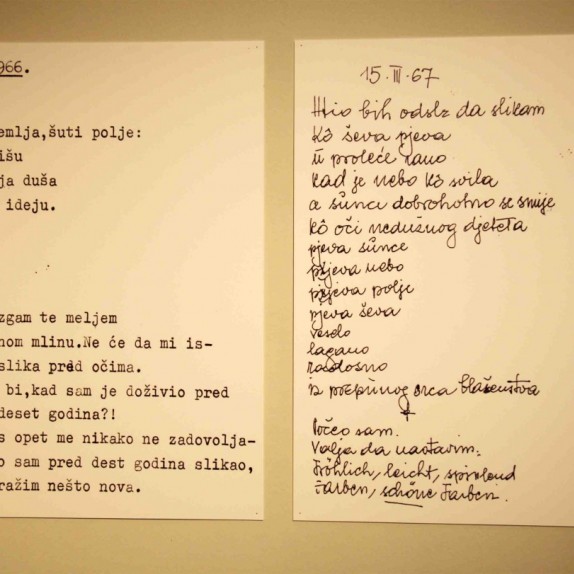 1966.
emlja,šuti polje:
išu
ja duša
ideju.
zgam te meljem
nom mlinu.Ne će da mi is-
slika pred očima.
bi,kad sam je doživio pred
deset godina?!
s opet me nikako ne zadovolja-
o sam pred dest godina slikao,
ražim nešto nova.
15.III.67
Htio bih odslz da slikam
kô ševa pjeva
u proleće rano
kad je nebo kô svila
a sunce dobrohotno se smije
kô oči nedužnog djeteta
pjeva sunce
pjeva nebo
pjeva polje
pjeva ševa
veselo
lagano
radosno
iz prepunog srca blaženstva
Počeo sam.
Valja da nastavim.
Fröhlich, leicht,
Farben, schöne Farben.